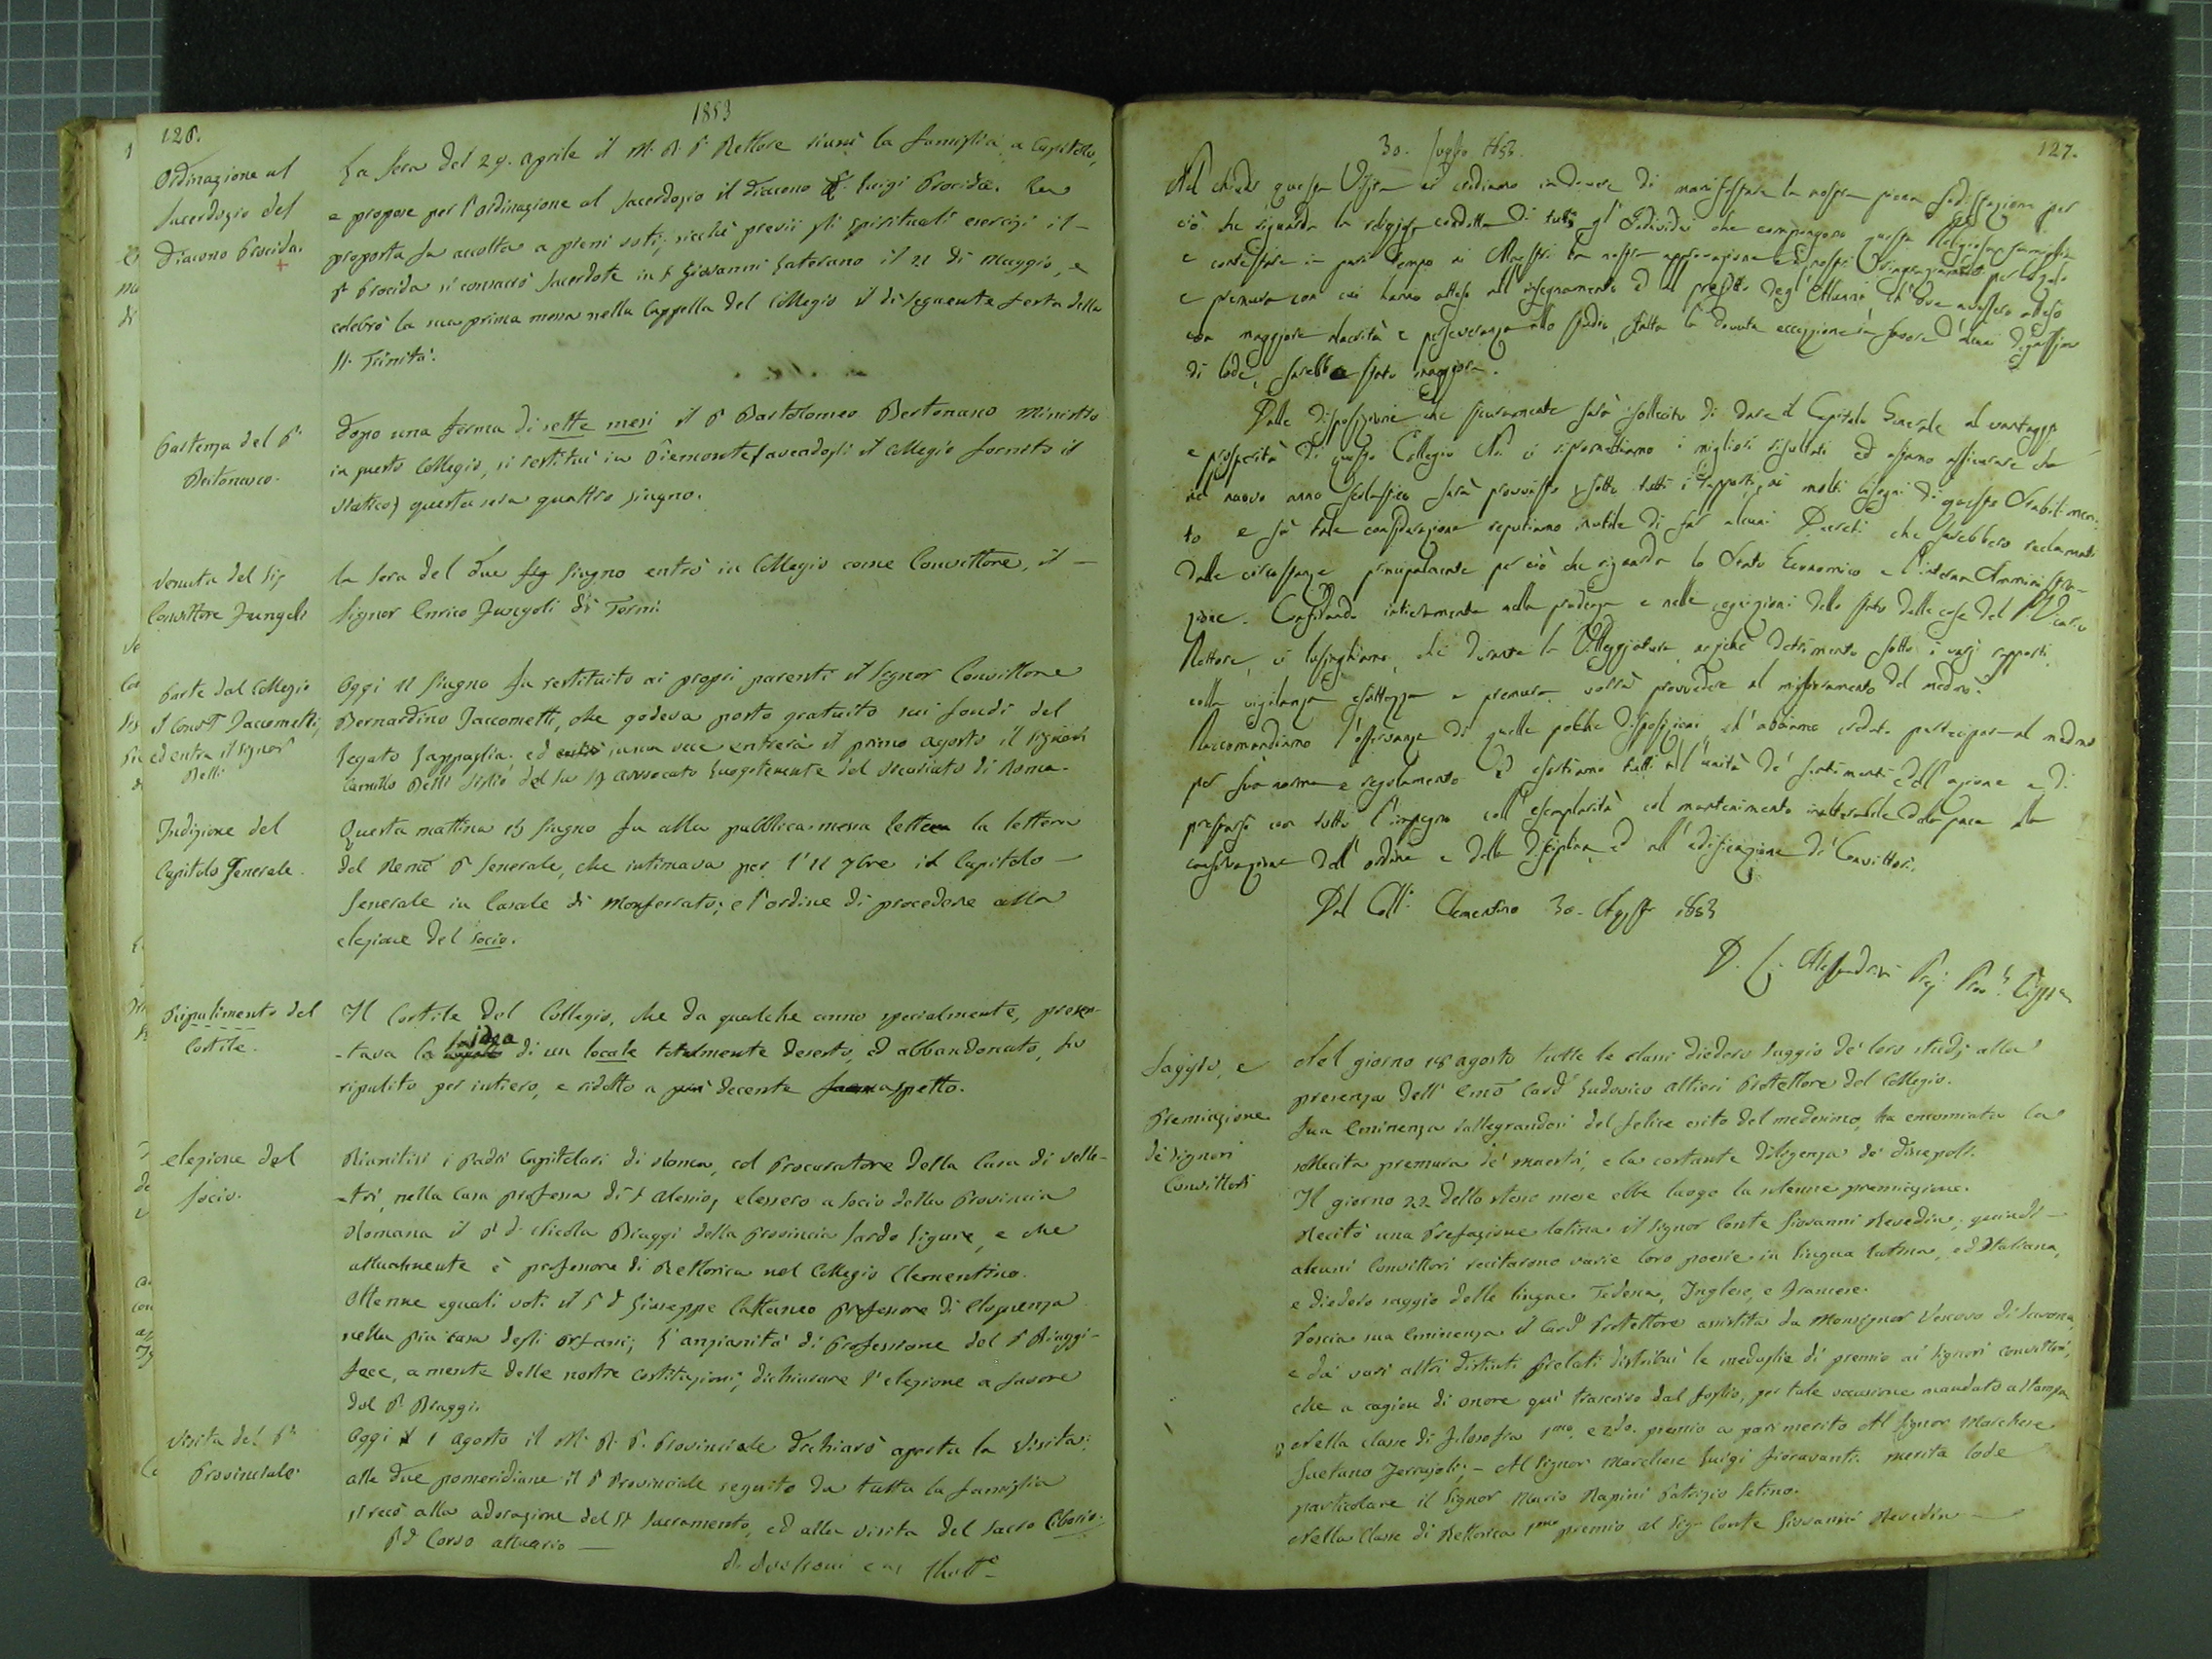 126.
1853
Ordinazione al
Sacerdozio del
Diacono Procida.
La sera del 29. aprile il M. R. P. Rettore riunì la famiglia a Capitolo,
e propose per l'ordinazione al Sacerdozio il Diacono D. Luigi Procida. La
proposta fu accolta a pieni voti; sicchè previi gli spirituali esercizi il
P. Procida si consacrò Sacerdote in S. Giovanni Laterano il 21 di Maggio, e
celebrò la sua prima messa nella Cappella del Collegio il dì seguente festa della
SS. Trinità.
Partenza del P.
Bertonasco.
Dopo una ferma di sette mesi il P. Bartolomeo Bertonasco Ministro
in questo Collegio, si restituì in Piemonte (avendogli il Collegio fornito il
viatico) questa sera quattro giugno.
Venuta del Sig.
Convittore Fungoli
La sera del due Giugno entrò in Collegio come Convittore, il
Signor Enrico Fungoli di Terni.
Parte dal Collegio
il Conv. Jaccometti,
ed entra il Signor
Belli
Oggi 11 Giugno fu restituito ai propri parenti il Signor Convittore
Bernardino Jaccometti, che godeva posto gratuito sui fondi del
Legato Gappaglia. ed in sua vece entrerà il primo agosto il Signor
Camillo Belli figlio del fu Sig. Avvocato Luogotenente del Vicariato di Roma.
Indizione del
Capitolo Generale.
Questa mattina 13 Giugno fu alla pubblica mensa letta la lettera
del Remo P. Generale, che intimava per l'11 7bre il Capitolo
Generale in Casale di Monferrato; e l'ordine di procedere alla
elezione del socio.
Ripulimento del
Cortile.
Il Cortile del Collegio, che da qualche anno specialmente, presen-
-tava la idea di un locale totalmente deserto, ed abbandonato, fu
ripulito per intiero, e ridotto a più decente aspetto.
elezione del
socio.
Riunitisi i Padri Capitolari di Roma, col Procuratore della Casa di Velle-
-tri, nella Casa professa di S. Alessio, elessero a socio della Provincia
Romana il P. D. Nicola Biaggi della Provincia Sardo Ligure, e che
attualmente è professore di Rettorica nel Collegio Clementino.
Ottenne eguali voti il P. D. Giuseppe Cattaneo Professore di eloquenza
nella Pia Casa degli Orfani; l'anzianità di Professione del P. Biaggi
fece, a mente delle nostre costituzioni, dichiarare l'elezione a favore
del P. Biaggi.
Visita del P.
Provinciale.
Oggi 1 Agosto il M. R. P. Provinciale dichiarò aperta la Visita:
alle due pomeridiane il P. Provinciale seguito da tutta la famiglia
si recò alla adorazione del SS. Sacramento, ed alla visita del Sacro Ciborio.
P. D. Corso attuario
127.
30. Luglio 1853.
Nel chiudere questa Visita ci crediamo in dovere di manifestare la nostra piena sodisfazione per
ciò che riguarda la religiosa condotta di tutti gl'Individui che compongono questa Religiosa famiglia
e contestare in pari tempo ai Maestri la nostra approvazione ed i nostri ringraziamenti per lo zelo
e premura con cui hanno atteso all'insegnamento ed al profitto degl'Alunni ch'ove avessero atteso
con maggiore alacrità e perseveranza allo studio, fatta la dovuta eccezione in favore d'alcuni degnissimi
di lode, sarebbe stato maggiore.
Dalle disposizioni che sicuramente sarà sollecito di dare il Capitolo Generale al vantaggio
e prosperità di questo Collegio Noi ci ripromettiamo i migliori risultati ed osiamo assicurare che
nel nuovo anno scolastico sarà provvisto sotto tutti i rapporti ai molti bisogni di questo Stabilimen-
to e su tale considerazione reputiamo inutile di far alcuni Decreti che sarebbero reclamati
dalle circostanze principalmente per ciò che riguarda lo Stato Economico e l'interna Amministra-
zione. Confidando intieramente nella prudenza e nelle cognizioni dello stato delle cose del P. Vicario
Rettore, ci lusinghiamo, che durante la Villeggiatura, anzichè detrimento sotto i varj rapporti,
colla vigilanza esattezza e premura vorrà provvedere al miglioramento del medmo.
Raccomandiamo l'osservanza di quelle poche disposizioni, ch'abbiamo creduto partecipare al medmo
per sua norma e regolamento ed esortiamo tutti all'unità de' sentimenti dell'azione e di
prestarsi con tutto l'impegno coll'esemplarità col mantenimento inalterabile della pace alla
conservazione dell'ordine e della disciplina ed all'edificazione de' Convittori.
Dal Coll. Clementino 30. Agosto 1853
Saggio, e
Premiazione
de' Signori
Convittori
Nel giorno 18 agosto tutte le classi diedero saggio de' loro studj alla
presenza dell'Emo Card. Ludovico Altieri Protettore del Collegio.
Sua Eminenza rallegrandosi del felice esito del medesimo, ha encomiata la
sollecita premura de' maestri, e la costante diligenza de' discepoli.
Il giorno 22 dello stesso mese ebbe luogo la solenne premiazione.
Recitò una Prefazione latina il Signor Conte Giovanni Revedin; quindi
alcuni Convittori recitarono varie loro poesie in lingua latina, ed Italiana,
e diedero saggio delle lingue Tedesca, Inglese, e francese.
Poscia sua Eminenza il Card. Protettore assistito da Monsignor Vescovo di Savona,
e da vari altri distinti Prelati distribuì le medaglie di premio ai Signori convittori,
che a cagion di onore qui trascrivo dal foglio, per tale occasione mandato a stampa
Nella classe di filosofia 1mo, e 2do. premio a pari merito Al Signor Marchese
Gaetano Ferrajoli; - Al Signor Marchese Luigi Fioravanti. merita lode
particolare il Signor Mario Rapini Patrizio Setino.
Nella Classe di Rettorica 1mo premio al Sig. Conte Giovanni Revedin